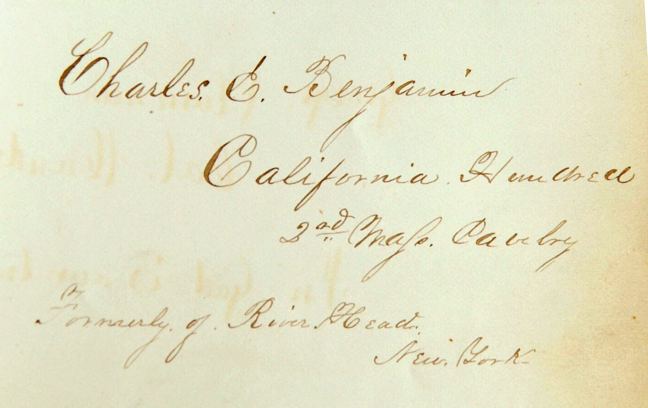 Charles. E. Benjamin
California. Hundred
2nd Mass. Cavelry
Formerly. of. River. Head.
New. York